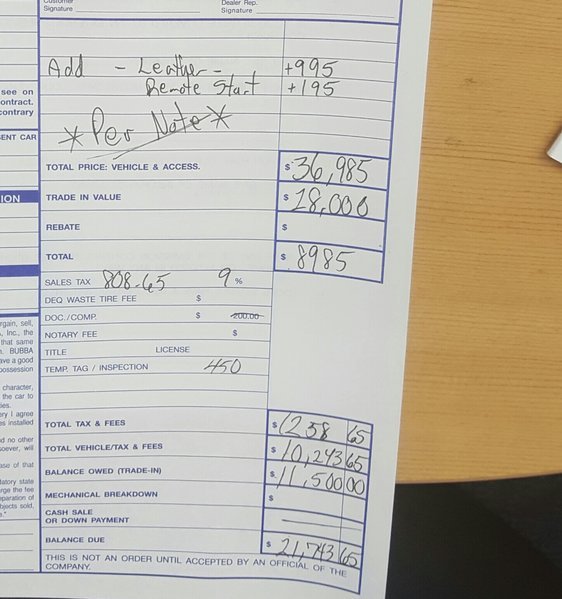 Customer
Signature
Dealer Rep.
Signature
Add - Leather - +995
Remote Start +195
*Per Note*
TOTAL PRICE: VEHICLE & ACCESS. $ 36,985
TRADE IN VALUE $ 28,000
REBATE $
TOTAL $ 8985
SALES TAX 808.65 9 %
DEQ WASTE TIRE FEE $
DOC./COMP. $ 200.00
NOTARY FEE $
TITLE LICENSE
TEMP. TAG / INSPECTION 450
TOTAL TAX & FEES $ 1258 65
TOTAL VEHICLE/TAX & FEES $ 10,243 65
BALANCE OWED (TRADE-IN) $ 11,500 00
MECHANICAL BREAKDOWN $
CASH SALE
OR DOWN PAYMENT
BALANCE DUE $ 21,743 65
THIS IS NOT AN ORDER UNTIL ACCEPTED BY AN OFFICIAL OF THE
COMPANY.
see on
ontract.
contrary
ENT CAR
ION
rgain, sell,
, Inc., the
that same
n. BUBBA
ave a good
possession
character,
the car to
ies.
ery I agree
es installed
nd no other
soever, will
ase of that
datory state
rge the fee
eparation of
bjects sold,